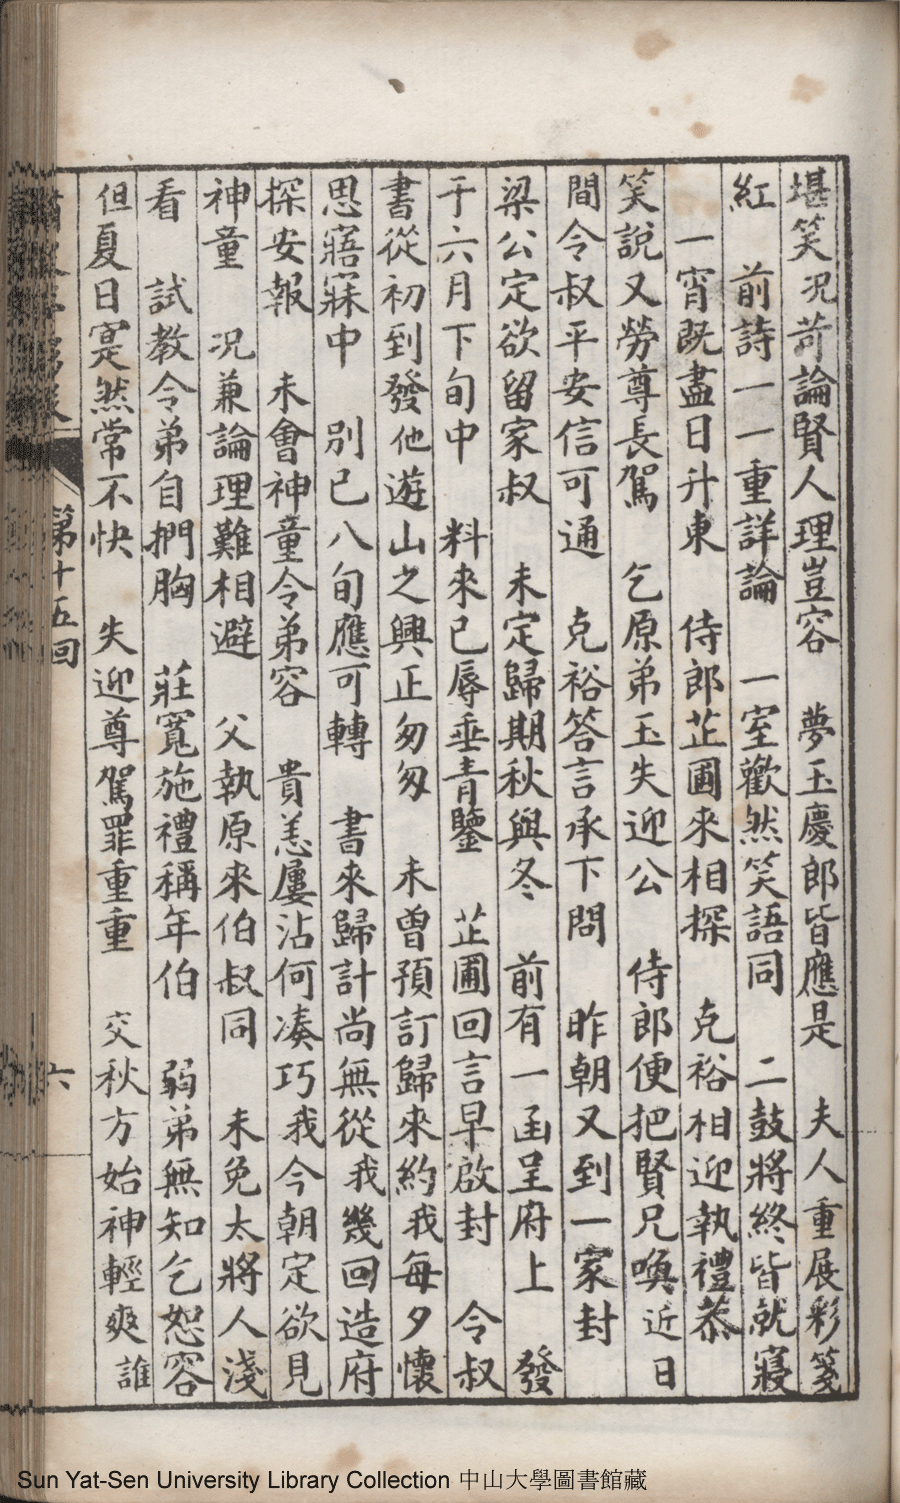 堪笑况苛論賢人理豈容　夢玉慶郎皆應是　夫人重展彩箋
紅　前詩一一重詳論　一室歡然笑語同　二鼓將終皆就寢
一宵既盡日升東　侍郎芷圃來相探　克裕相迎執禮恭
笑說又勞尊長駕　乞原弟玉失迎公　侍郎便把賢兄喚近日
間令叔平安信可通　克裕答言承下問　昨朝又到一家封
梁公定欲留家叔　未定歸期秋與冬　前有一函呈府上　發
于六月下旬中　料來已辱垂青鑒　芷圃回言早啟封　令叔
書從初到發他遊山之興正匆匆　未曾預訂歸來約我每夕懷
思寤寐中　別已八旬應可轉　書來歸計尚無從我幾回造府
探安報　未會神童令弟容　貴恙屢沾何凑巧我今朝定欲見
神童　况兼論理難相避　父執原來伯叔同　未免太將人淺
看　試教令弟自捫胸　莊寬施禮稱年伯　弱弟無知乞恕容
但夏日寔然常不快　失迎尊駕罪重重　交秋方始神輕爽誰
第十五回　六
Sun Yat-Sen University Library Collection 中山大學圖書館藏